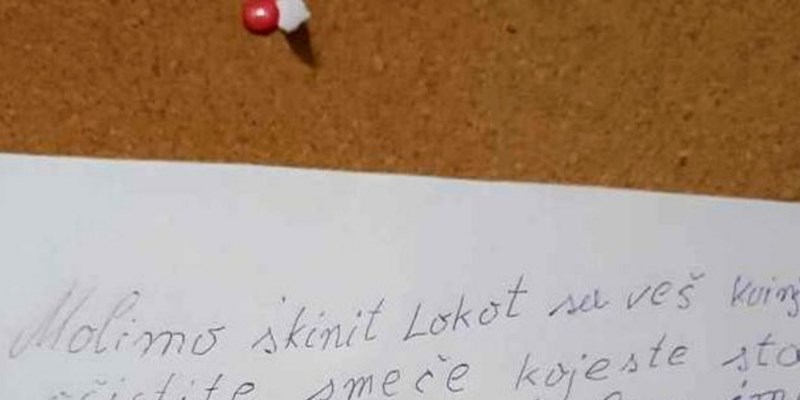 Molimo skinit Lokot sa veš
očistite smeče kojeste